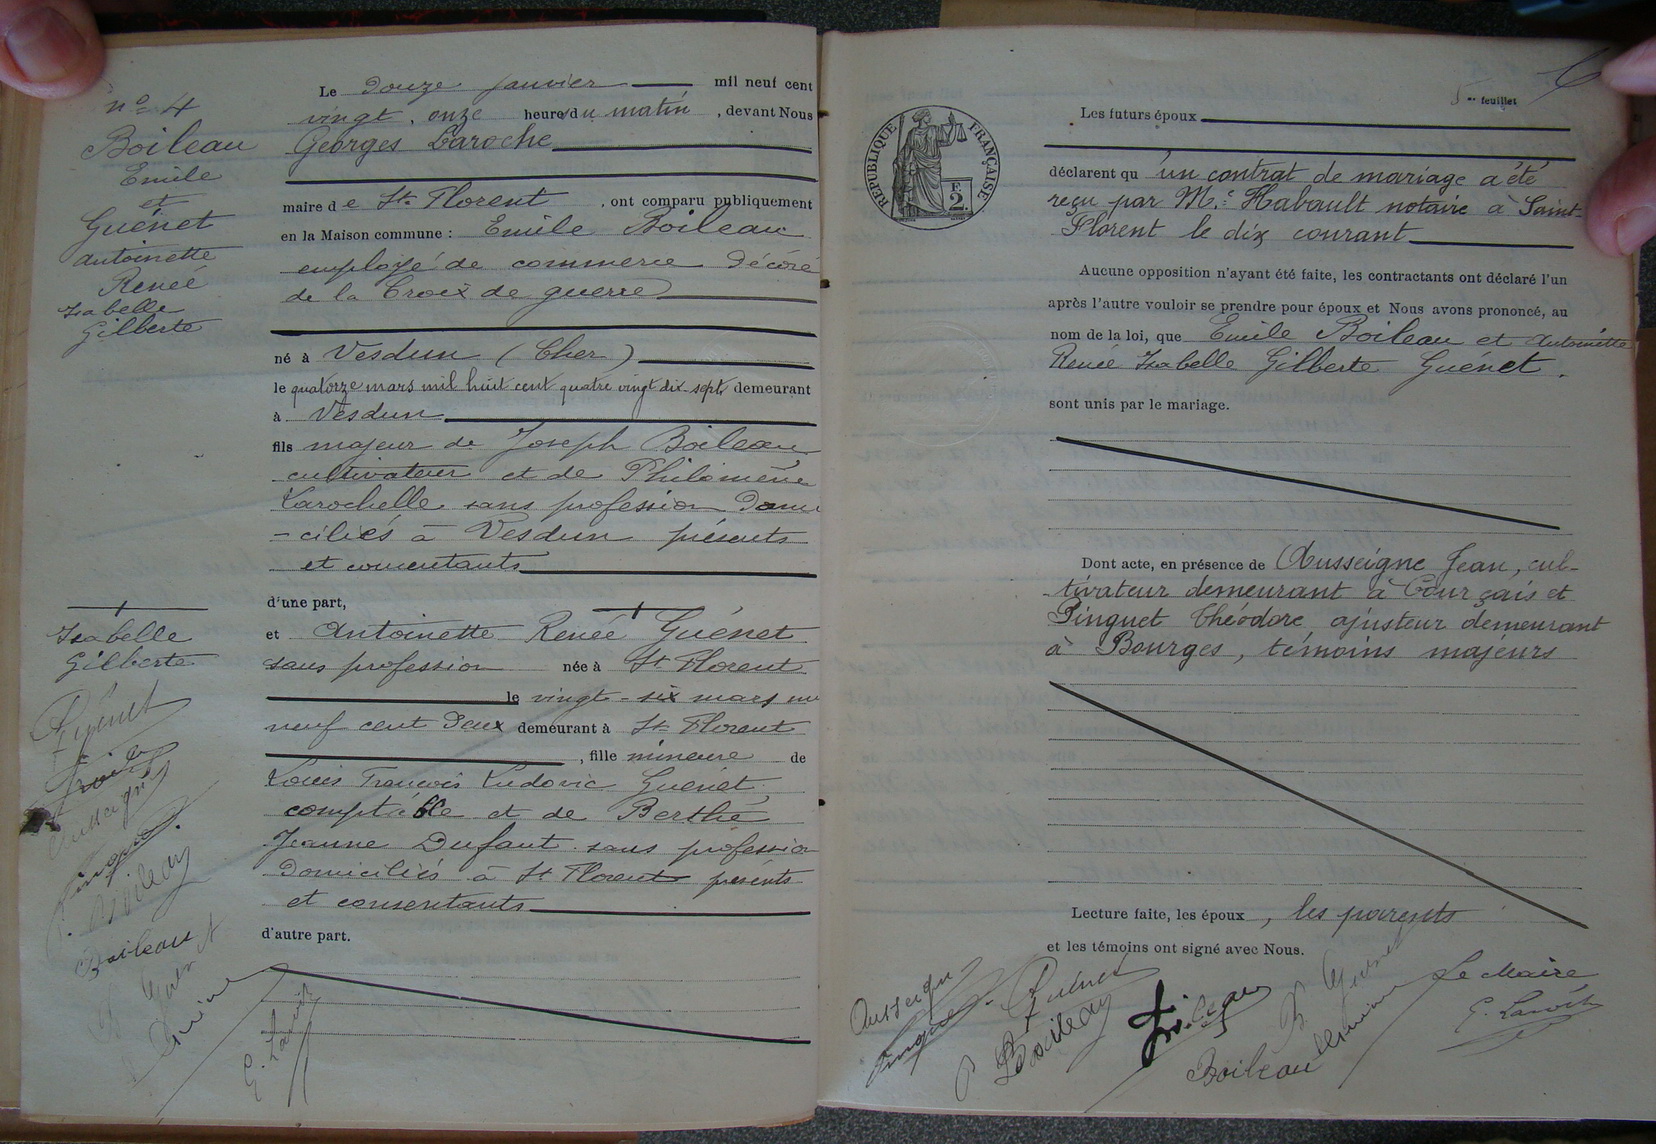 n° 4
Boileau
Emile
et
Guénet
Antoinette
Renée
Isabelle
Gilberte
Le douze janvier mil neuf cent
vingt, onze heure du matin, devant Nous
Georges Laroche
maire de St Florent, ont comparu publiquement
en la Maison commune : Emile Boileau
employé de commerce Décoré
de la Croix de guerre
né à Vesdun (Cher)
le quatorze mars mil huit cent quatre vingt dix-sept demeurant
à Vesdun
fils majeur de Joseph Boileau
cultivateur et de Philomène
Larochelle sans profession Domi
-ciliés à Vesdun présents
et consentants
d'une part,
et Antoinette Renée Guénet
sans profession née à St Florent
le vingt-six mars mil
neuf cent Deux demeurant à St Florent
, fille mineure de
Louis François Ludovic Guénet
comptable et de Berthe
Jeanne Dufaut sans profession
Domiciliés à St Florent présents
et consentants
d'autre part.
Isabelle
Gilberte
Guénet
Boileau
Boileau
feuillet
RÉPUBLIQUE FRANÇAISE
F. 2.
Les futurs époux
déclarent qu'un contrat de mariage a été
reçu par Me Habault notaire à Saint-
Florent le dix courant
Aucune opposition n'ayant été faite, les contractants ont déclaré l'un
après l'autre vouloir se prendre pour époux et Nous avons prononcé, au
nom de la loi, que Emile Boileau et Antoinette
Renée Isabelle Gilberte Guénet.
sont unis par le mariage.
Dont acte, en présence de Ausseigne Jean, cul-
tivateur demeurant à Courçais et
Pinguet Théodore ajusteur demeurant
à Bourges, témoins majeurs
Lecture faite, les époux, les parents
et les témoins ont signé avec Nous.
Le Maire
Boileau
Boileau